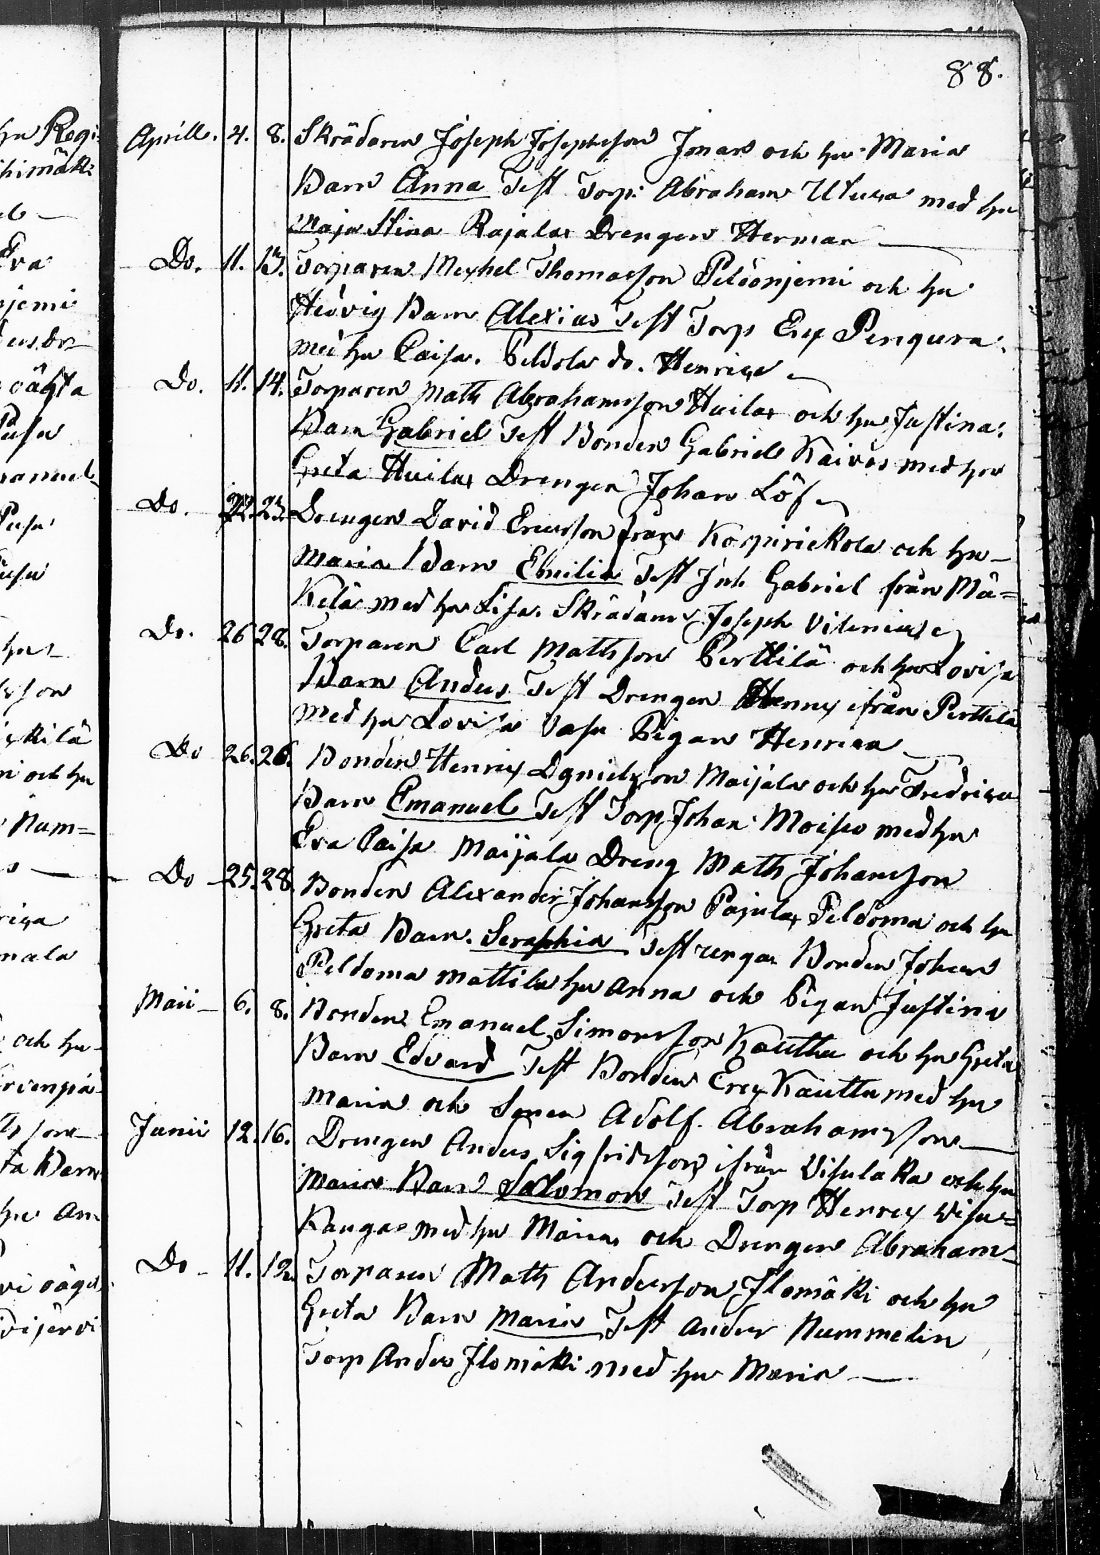 88.
Aprill. 4. 8. Skrädaren Joseph Josephsson Jonas och hu Maria
Barn Anna Test Torp: Abraham Utusa med hu
Maja Stina Rajala Drengen Herman
Do. 11. 13. Torparen Michel Thomasson Peldonjemi och hu
Hedvig Barn Alexius Test Torp Eric Pengura
med hu Caisa. Peldola do. Henrica
Do. 11. 14. Torparen Math Abrahamsson Huila och hu Justina
Barn Gabriel Test Bonden Gabriel Kaivos med hu
Greta Huila Drengen Johan Löf
Do. 22. 23. Drengen David Ericsson från Korpirickola och hu
Maria Barn Emilia Test Inh Gabriel från Mä=
Kelä med hu Lisa. Skrädare Joseph Vilenius
Do. 26 28. Torparen Carl Mathsson Perttilä och hu Lovisa
Barn Anders Test Drengen Henric ifrån Perttilä
med hu Lovisa Vasu Pigan Henrica
Do 26. 26. Bonden Henric Danielsson Maijala och hu Fredrica
Barn Emanuel Test Torp Johan Moisio med hu
Eva Caisa Maijala Dreng Math Johansson
Do 25. 28. Bonden Alexander Johansson Pajula Peldoma och hu
Greta Barn. Seraphia Test unga Bonden Johan
Peldoma Mattila hu Anna och Pigan Justina
Maii 6. 8. Bonden Emanuel Simonsson Kauttu och hu Greta
Barn Edvard Test Bonden Eric Kauttu med hu
Maria och Sonen Adolf Abrahamsson
Junii 12. 16. Drengen Anders Sigfridsson ifrån Visulaka och hu
Maria Barn Salomon Test Torp Henric Visu=
Kangas med hu Maria och Drengen Abraham
Do 11. 12. Torparen Math Andersson Ilomäki och hu
Greta Barn Maria Test Anders Nummelin
Torp Anders Ilomäki med hu Maria